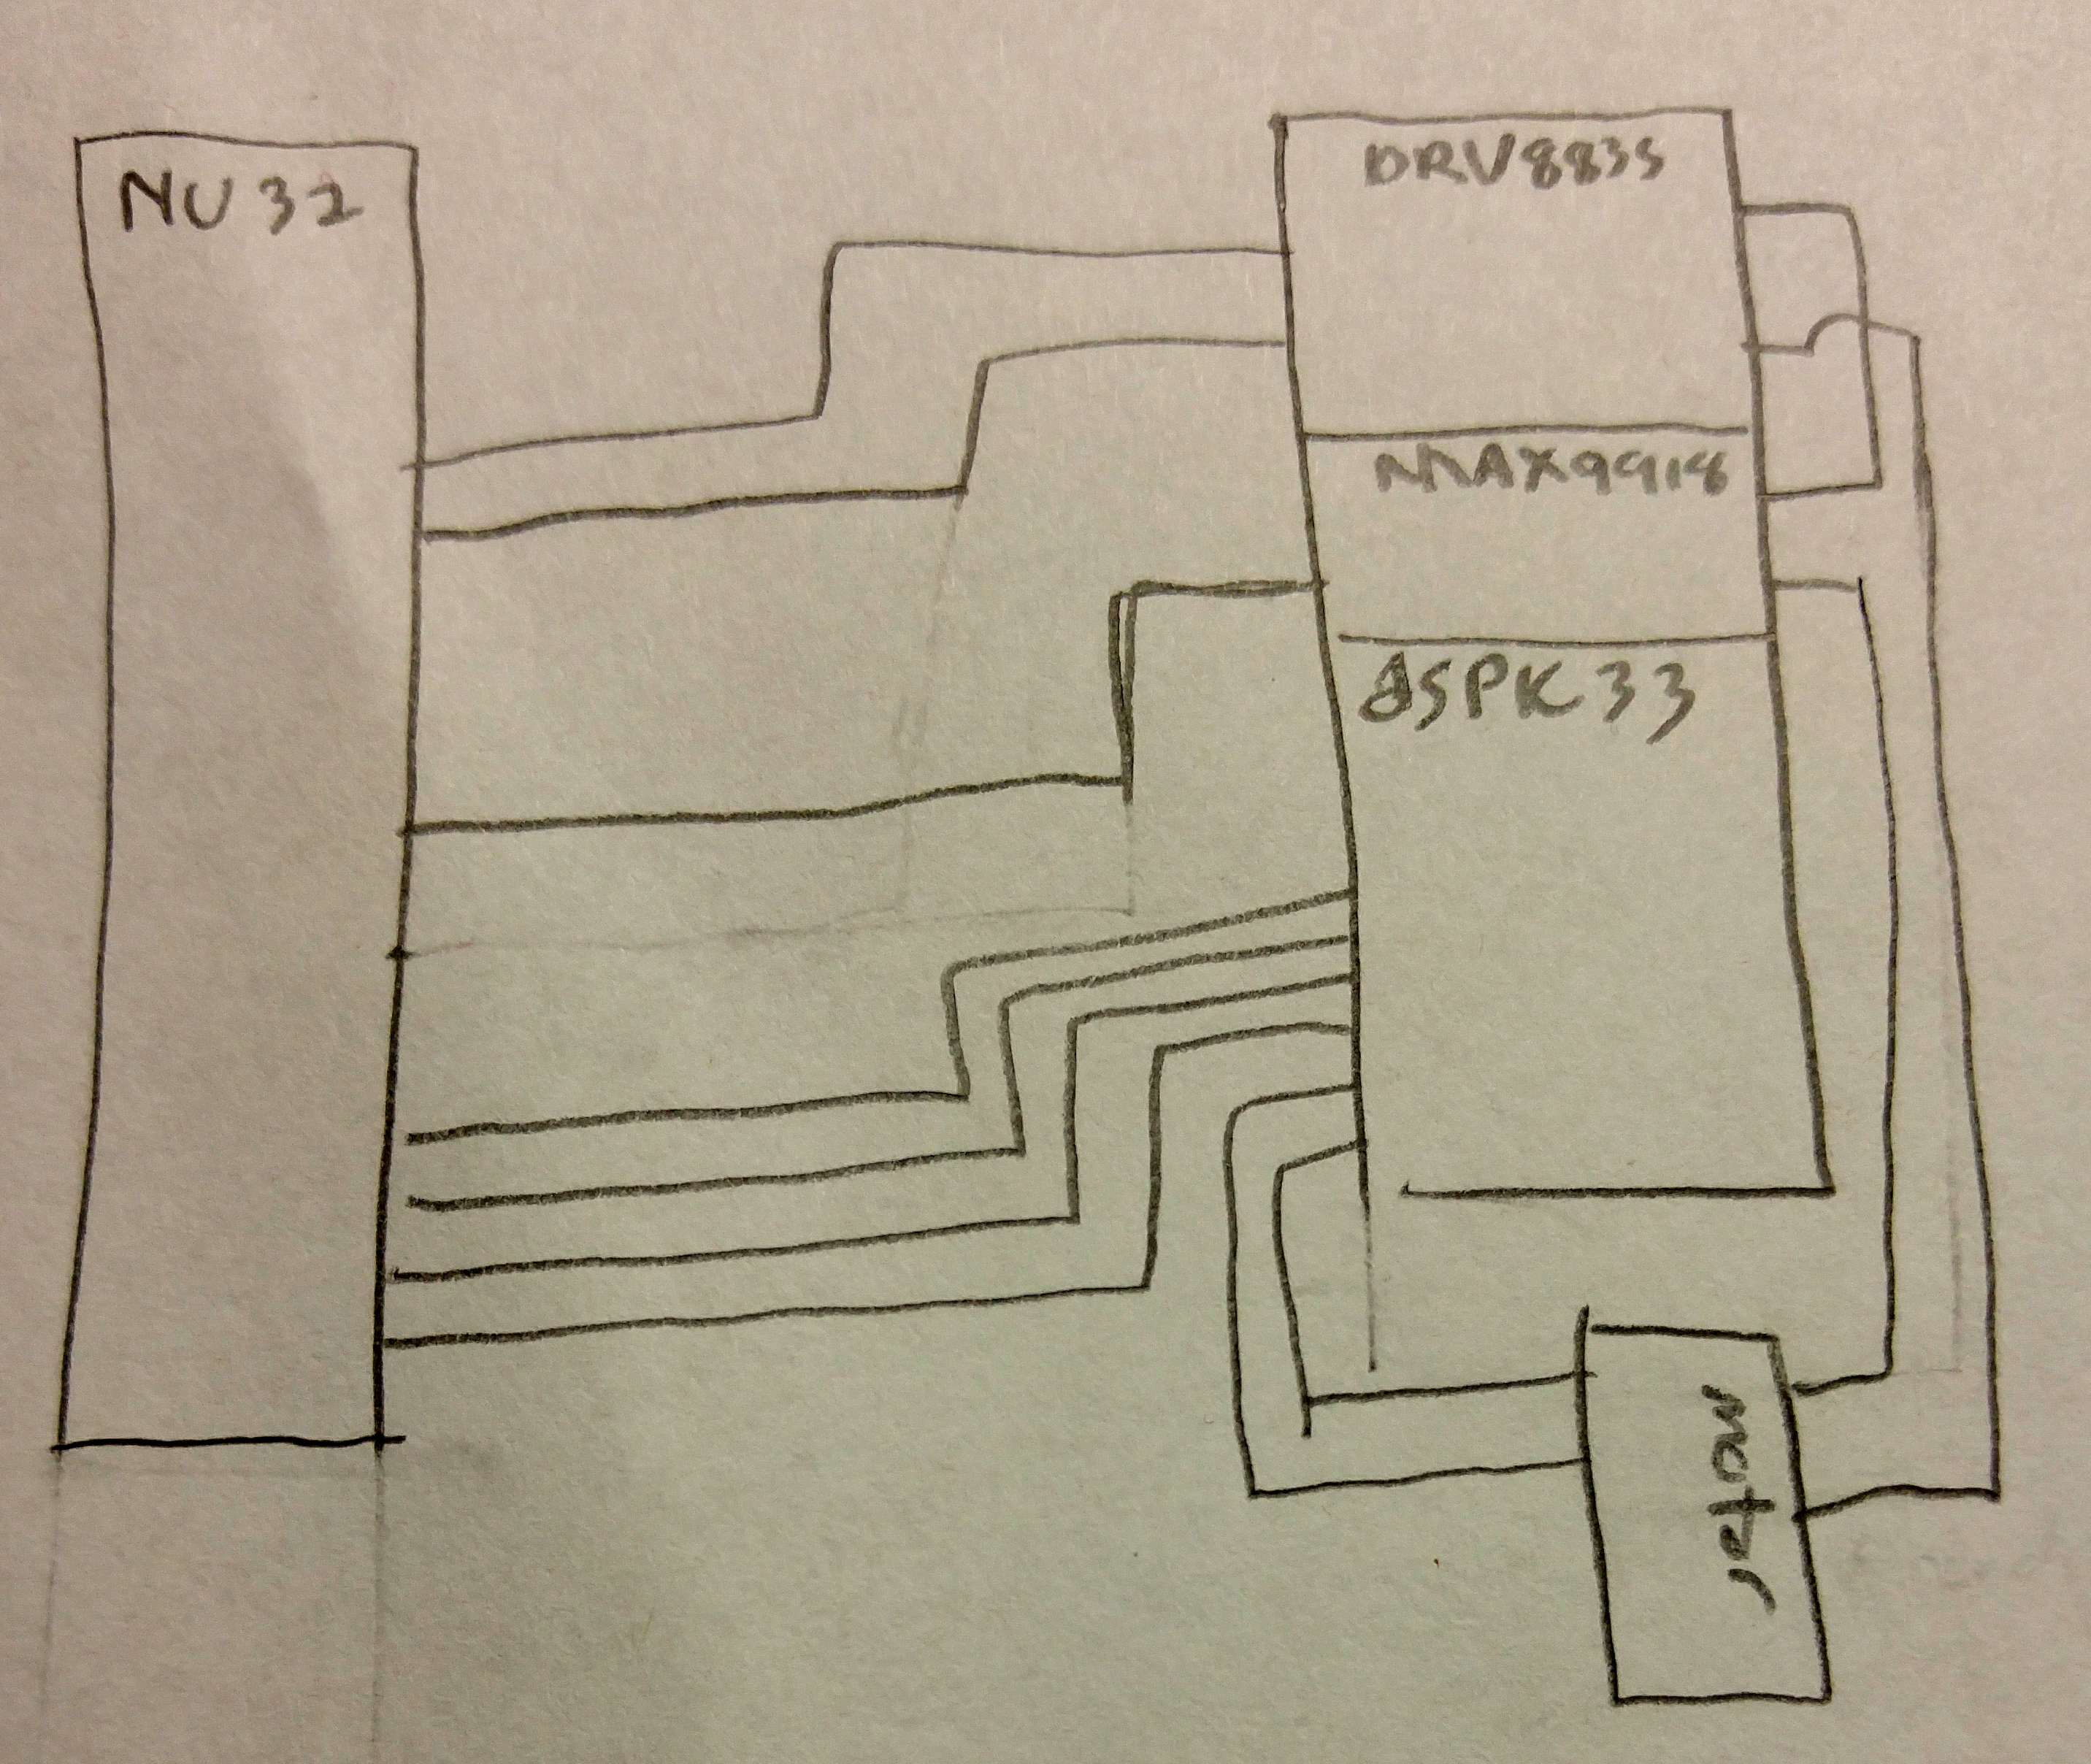 NU32
DRV8835
MAX9918
dSPK33
motor